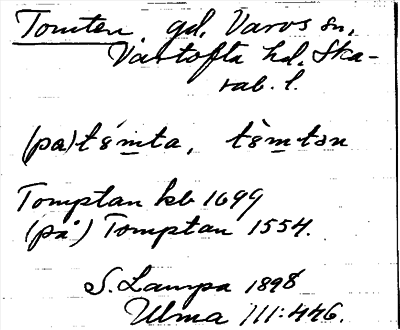 Tomten. gd. Varvs sn,
Vartofta hd. Ska-
rab. l.
(pa) támta, tàmtən
Tomptan kb 1699
(på) Tomptan 1554.
S. Lampa 1898
Ulma 111:446.